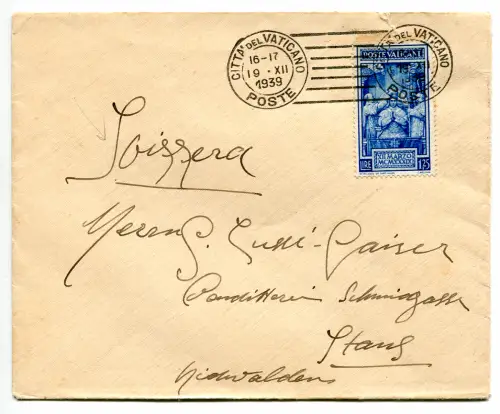 CITTA' DEL VATICANO
16-17
19 · XII
1939
POSTE
CITTA' DEL VATICANO
POSTE
POSTE VATICANE
XII MARZO
MCMXXXIX
LIRE 1,75
Svizzera
Herrn G.
Conditterei Schmiedgasse
Stans
Nidwalden